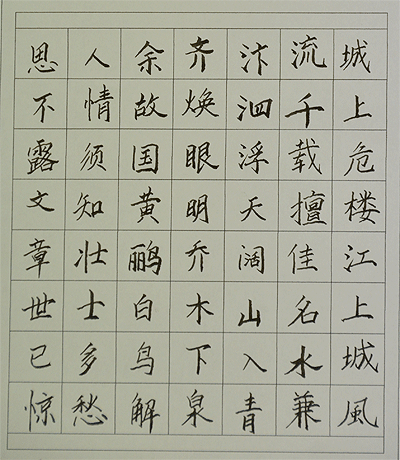 城上危楼江上城風
流千载擅佳名水兼
汴泗浮天阔山入青
齐焕眼明乔木下泉
余故国黄鹂白鸟解
人情须知壮士多愁
思不露文章世已惊